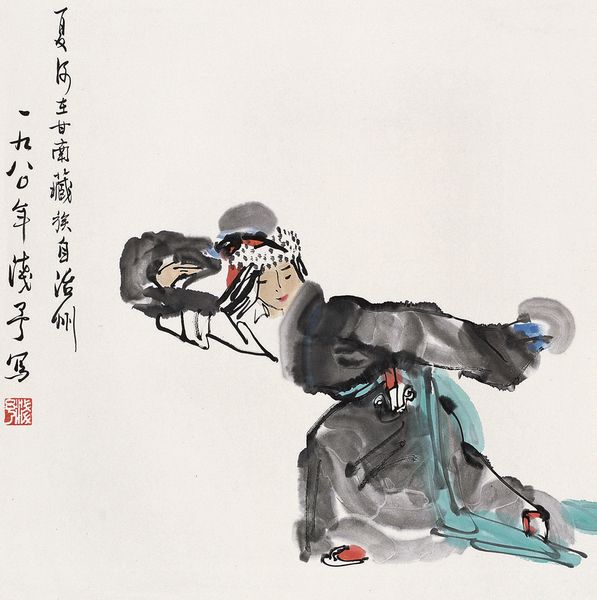 夏河在甘南藏族自治州
一九八〇年淺予写
淺予